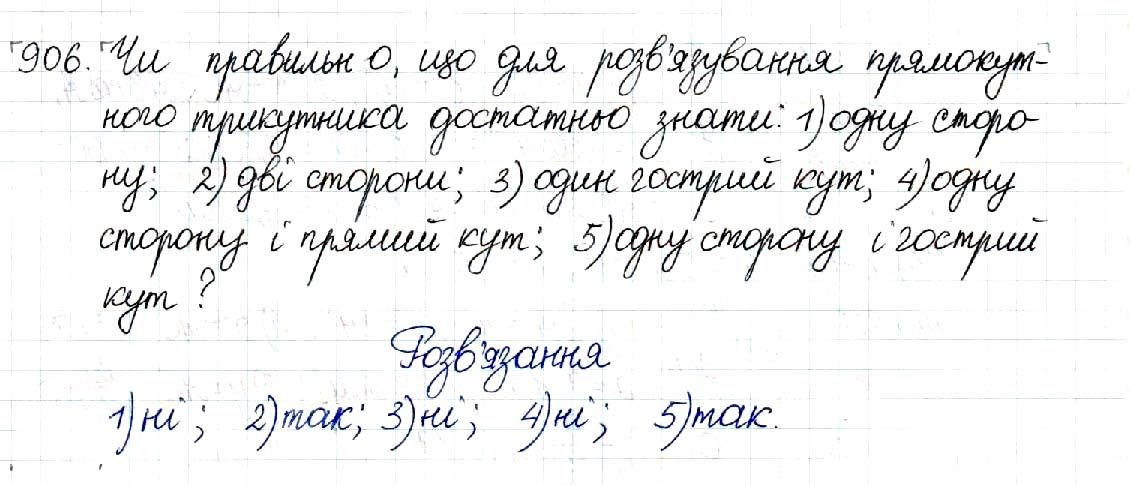 906. Чи правильно, що для розв'язування прямокут-
ного трикутника достатньо знати: 1) одну сторо-
ну; 2) дві сторони; 3) один гострий кут; 4) одну
сторону і прямий кут; 5) одну сторону і гострий
кут?
Розв'язання
1) ні; 2) так; 3) ні; 4) ні; 5) так.